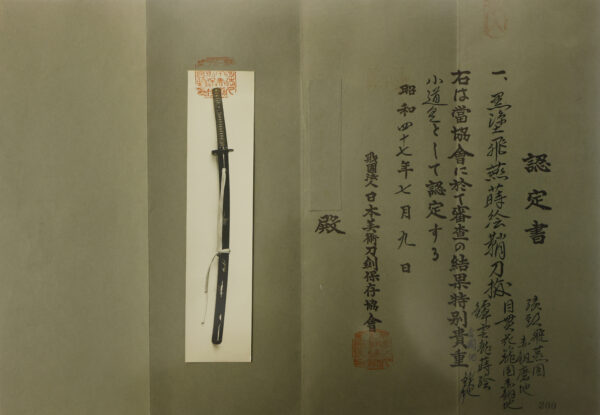 認定書
一、黒塗飛燕蒔絵鞘刀拵
縁頭飛燕図赤銅磨地
目貫
鐔雲龍蒔絵
右は當協會に於て審査の結果特別貴重
小道具として認定する
昭和四十七年七月九日
財團法人日本美術刀劍保存協會
殿
200